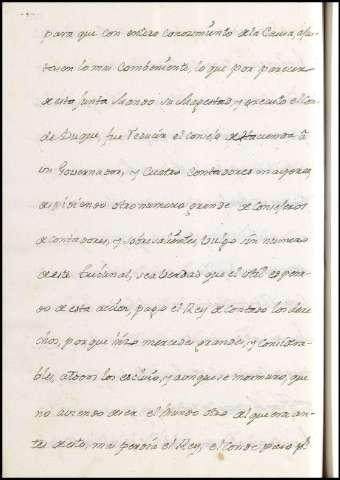 para que con entero conocimiento de la Causa, ajus-
tasen lo mas combeniente, lo que por parecer
de esta Junta Mando su Magestad, y executo el Con-
de Duque, fue reducir el consejo de Hacienda à
un Governador, y Cuatro Contadores mayores
despidiendo otro numero grande de Consejeros
de contadores, y sobresalientes, vulgo sin numero
de este tribunal, sea verdad que el util espera-
do de esta accion, pago el Rey de contado los dere-
chos, porque hizo mercedes grandes, y considera-
bles, a todos los excluio, y aunque se mormuro, que
no aviendo de ser el Mundo otro del que era an-
tes de esto, mas perdia el Rey, el Conde